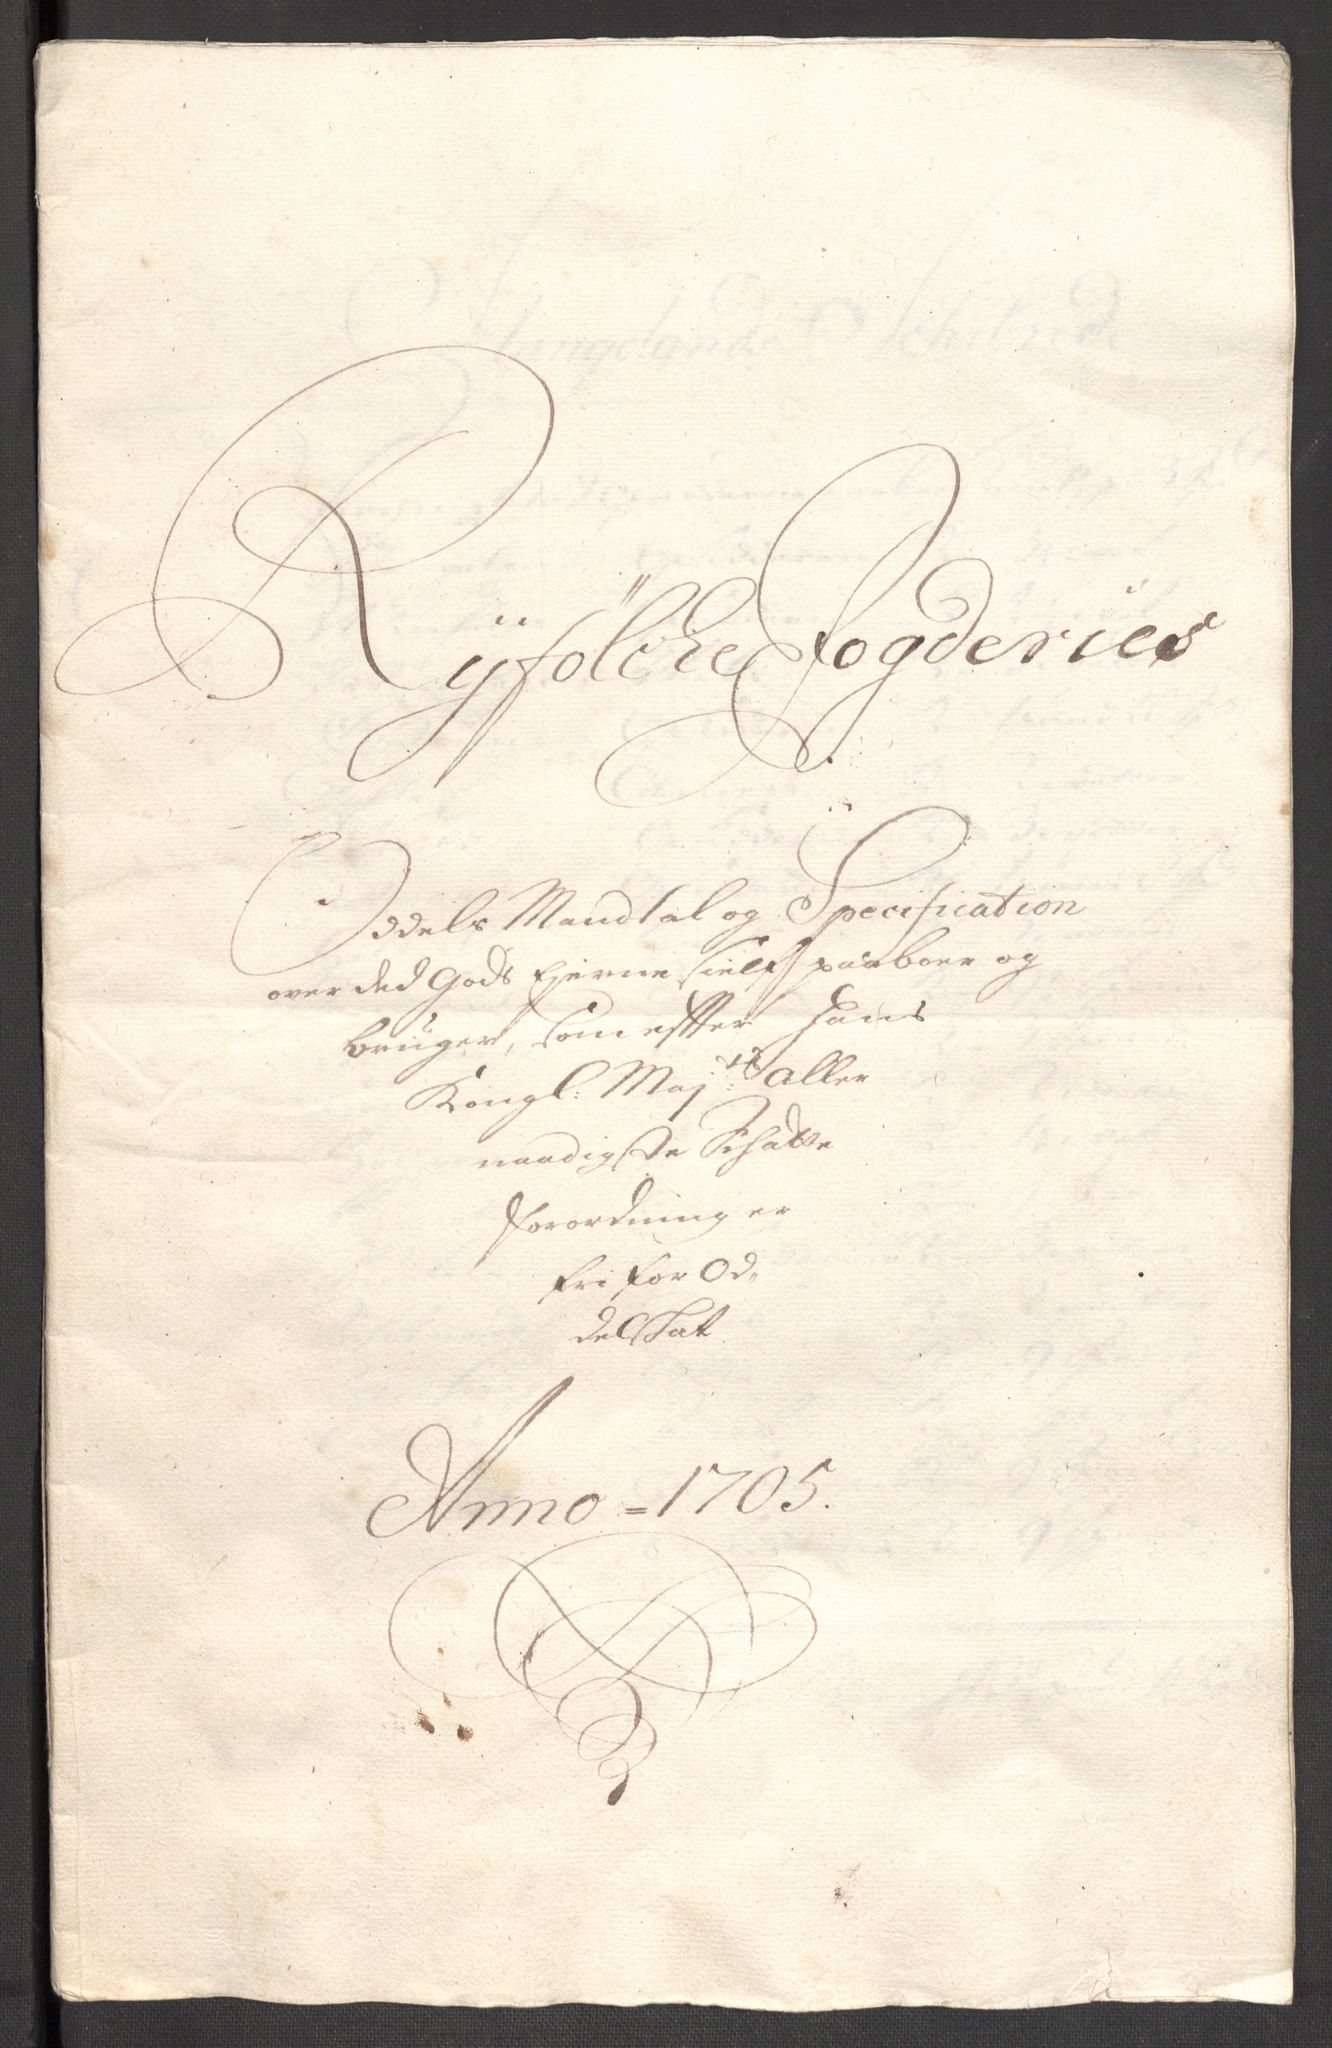 Ryfölcke Fogderies
Oddels Mandtal og Specification
over ded Gods Ejerne self paaboer og
bruger, som effter Hans
Kongl: Maj:ts aller
naadigste Schatte
forordning er
fri for Od„
delskat
Anno = 1705.